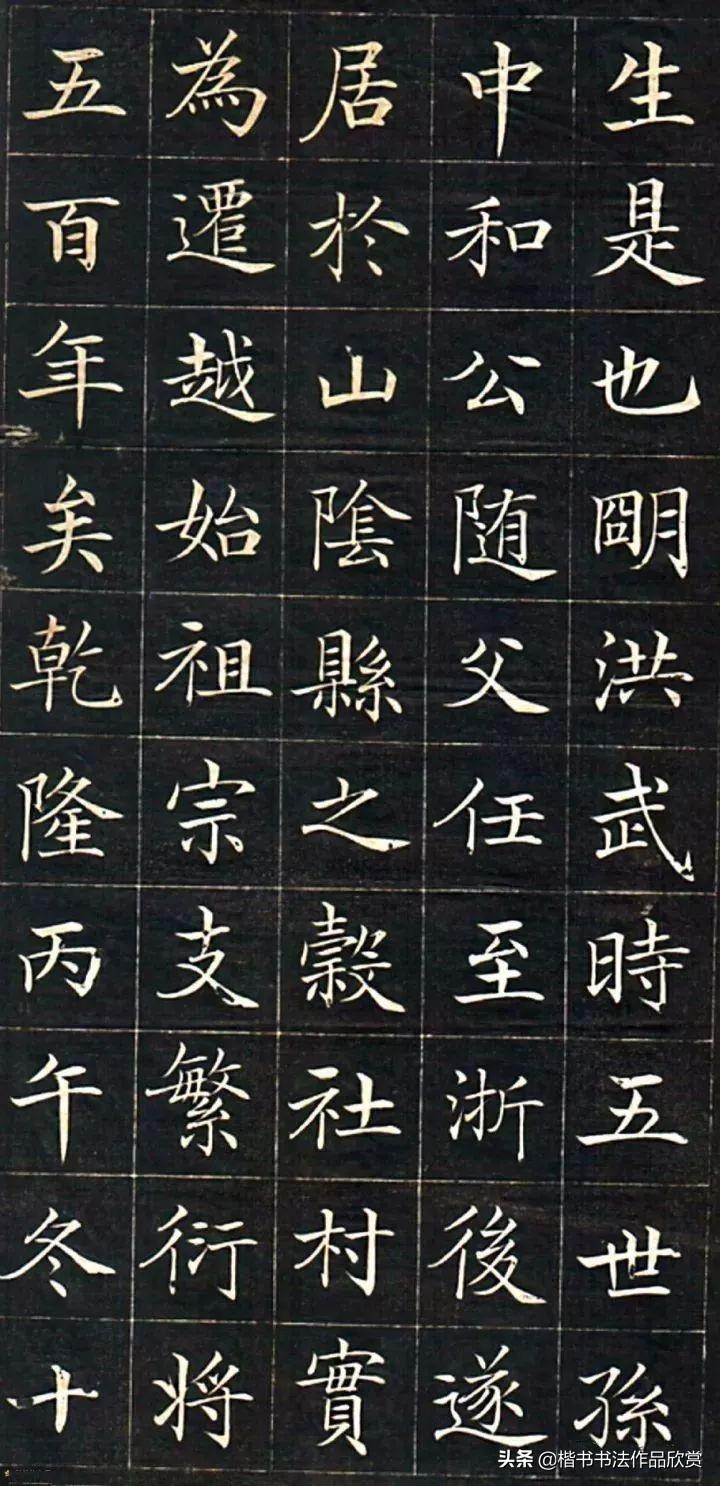 生是也明洪武時五世孫
中和公随父任至浙後遂
居於山陰縣之糓社村實
為遷越始祖宗支繁衍将
五百年矣乾隆丙午冬十
头条 @楷书书法作品欣赏